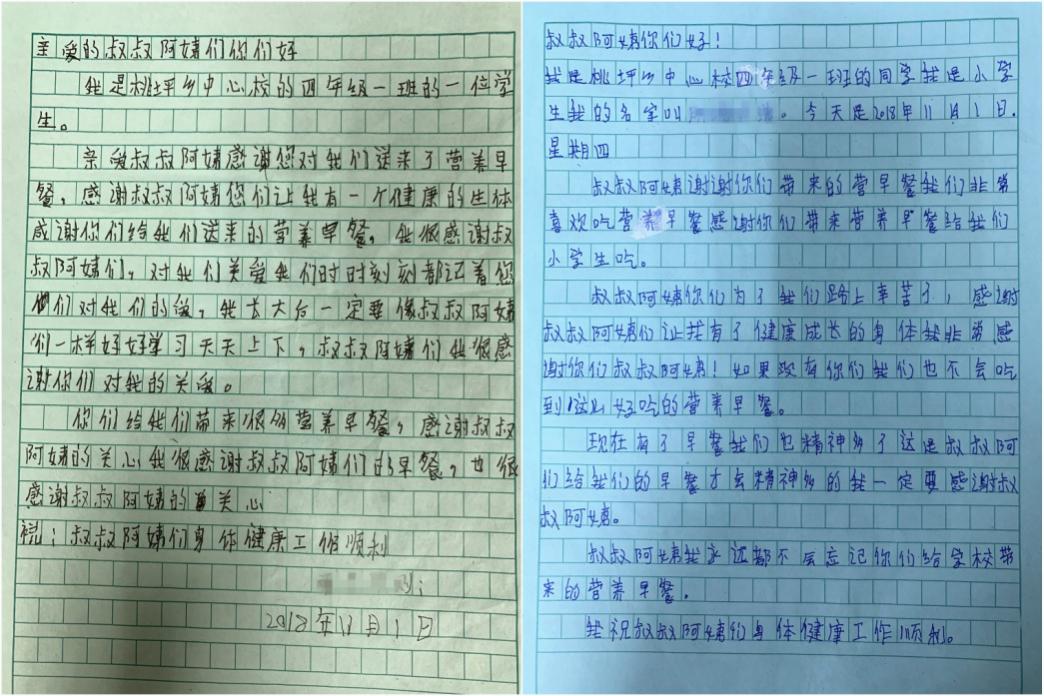 亲爱的叔叔阿姨们你们好
我是桃坪乡中心校的四年级一班的一位学
生。
亲爱叔叔阿姨感谢您对我们送来了营养早
餐，感谢叔叔阿姨您们让我有一个健康的生体
感谢你们给我们送来的营养早餐，我很感谢叔
叔阿姨们，对我们关爱我们时时刻刻都记着您
们对我们的爱，我长大后一定要像叔叔阿姨
们一样好好学习天天上下，叔叔阿姨们我很感
谢你们对我的关爱。
你们给我们带来很多营养早餐，感谢叔叔
阿姨的关心我很感谢叔叔阿姨们的早餐，也很
感谢叔叔阿姨的关心
祝：叔叔阿姨们身体健康工作顺利
2018年11月1日
叔叔阿姨你们好！
我是桃坪乡中心校四年级一班的同学我是小学
生我的名字叫。今天是2018年11月1日.
星期四
叔叔阿姨谢谢你们带来的营早餐我们非常
喜欢吃营养早餐感谢你们带来营养早餐给我们
小学生吃。
叔叔阿姨你们为了我们路上辛苦了，感谢
叔叔阿姨们让我有了健康成长的身体我非常感
谢你们叔叔阿姨！如果没有你们我们也不会吃
到这么好吃的营养早餐。
现在有了早餐我们也精神多了这是叔叔阿
们给我们的早餐才会精神多的我一定要感谢叔
叔阿姨。
叔叔阿姨我永远都不会忘记你们给学校带
来的营养早餐.
我祝叔叔阿姨们身体健康工作顺利。